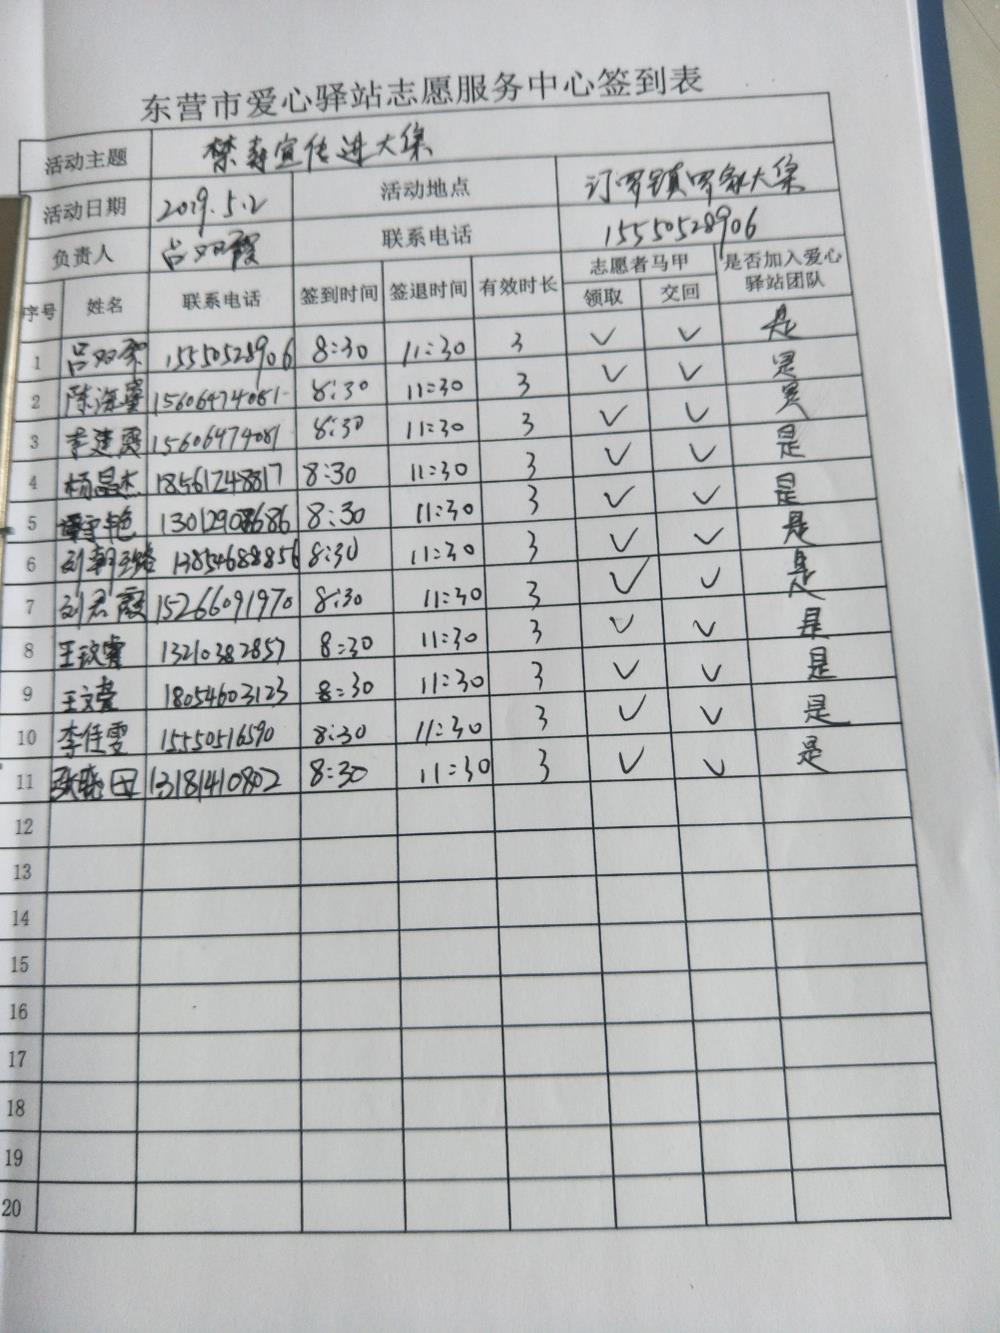 东营市爱心驿站志愿服务中心签到表
活动主题 禁毒宣传进大集
活动日期 2019.5.2 活动地点 汀罗镇罗家大集
负责人 吕双霞 联系电话 15550528906
序号 姓名 联系电话 签到时间 签退时间 有效时长 志愿者马甲 领取 交回 是否加入爱心驿站团队
1 吕双霞 15550528906 8:30 11:30 3 ✓ ✓ 是
2 陈海 15606474081 8:30 11:30 3 ✓ ✓ 是
3 李建霞 15606474081 8:30 11:30 3 ✓ ✓ 是
4 杨晶杰 18561248817 8:30 11:30 3 ✓ ✓ 是
5 艳 13012908686 8:30 11:30 3 ✓ ✓ 是
6 刘朝 13854688856 8:30 11:30 3 ✓ ✓ 是
7 刘君霞 15266091970 8:30 11:30 3 ✓ ✓ 是
8 王玟睿 13210382857 8:30 11:30 3 ✓ ✓ 是
9 王文 18054603123 8:30 11:30 3 ✓ ✓ 是
10 李佳雯 15550516590 8:30 11:30 3 ✓ ✓ 是
11 张 13181410802 8:30 11:30 3 ✓ ✓ 是
12
13
14
15
16
17
18
19
20